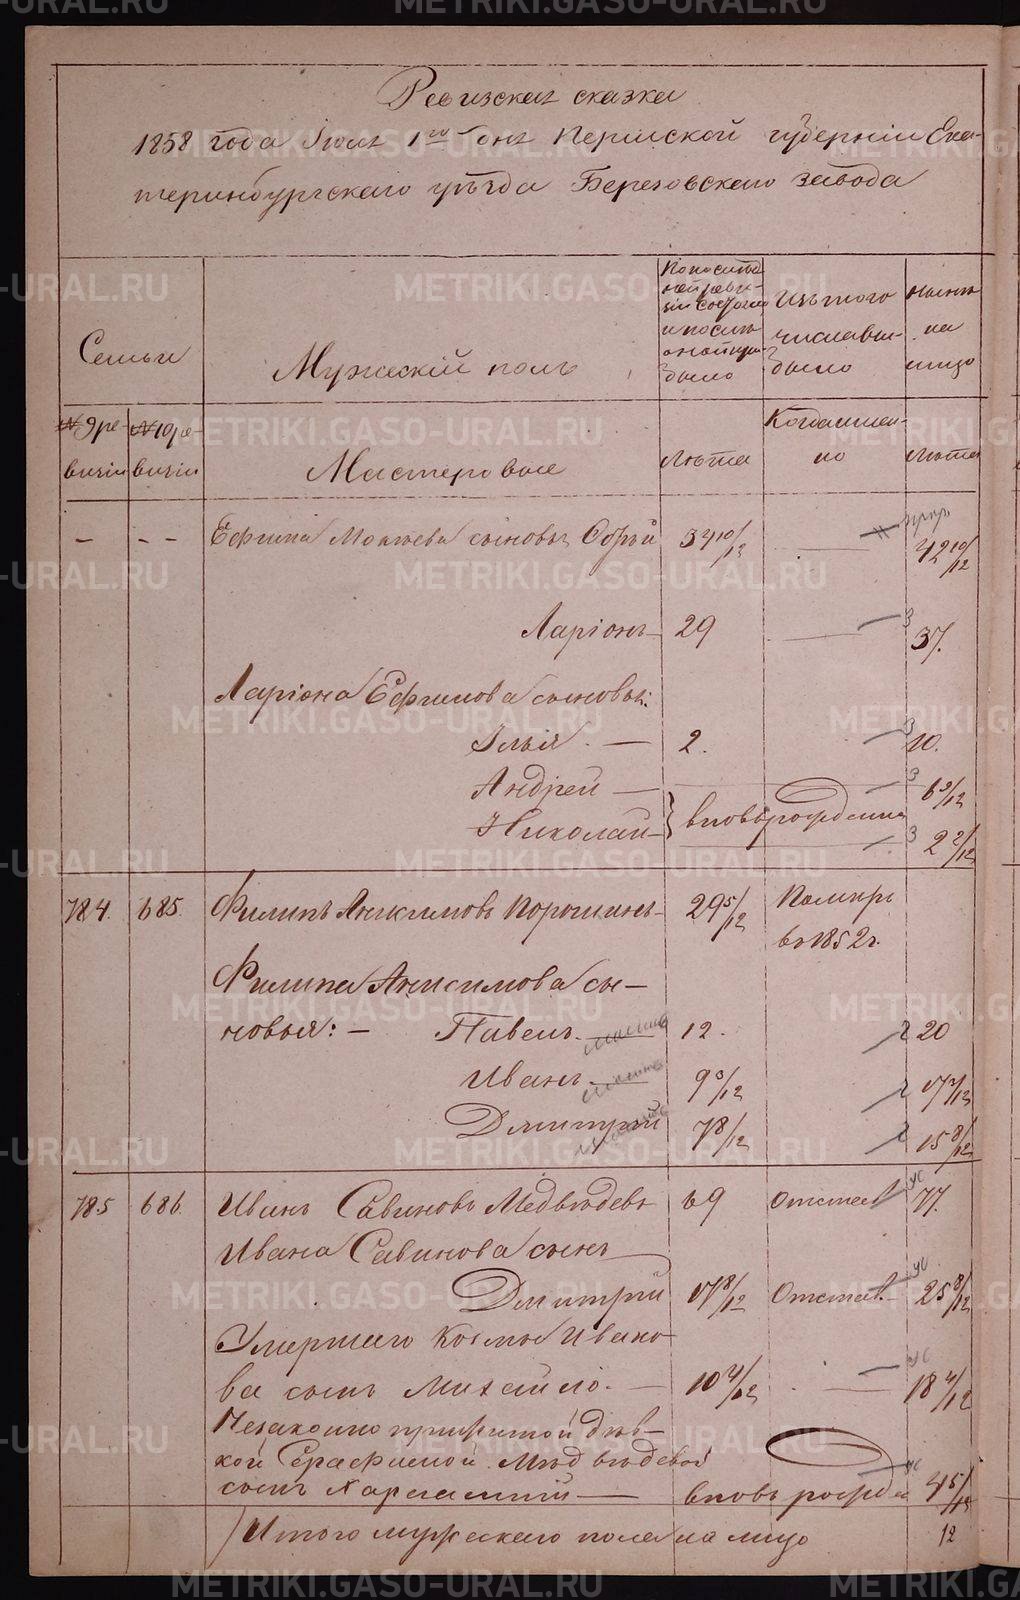 Ревизская сказка
1858 года Іюля 1го дня Пермской губерніи Ека-
теринбургскаго уѣзда Березовскаго завода
Семьи
Мужескій полъ
По послѣд-
ней реви-
зіи состояло
и послѣ
оной при-
было
Изъ того
числа вы-
было
Нынѣ
на
лицо
№ 9 ре-
визіи
№ 10 ре-
визіи
Мастеровые
Лѣта
Когда имен-
но
Лѣта
- - - Ефима Мокѣева сыновья 34 10/12 42 10/12
Ларіонъ 29 3 37.
Ларіона Ефимова сыновья:
Илья. — 2. 3 10.
Андрей — 3 6 9/12
Николай — вновь рождены 3 2 2/12
784. 685. Филипъ Анисимовъ Порошинъ 29 5/12 Померъ
въ 1852 г.
Филипа Анисимова сы-
новья: - Павелъ 12. 20
Иванъ 9 3/12 17 3/12
Дмитрий 7 8/12 15 8/12
785 686. Иванъ Савиновъ Медвѣдевъ 69 Отстав 77.
Ивана Савинова сынъ
Дмитрий 17 8/12 Отстав. 25 8/12
Умершаго Космы Ивано-
ва сынъ Михайло. — 10 4/12 18 4/12
Незаконно прижитой дѣв-
кой Серафимой Медвѣдевой
сынъ Харлампій — вновь рожден 4 5/12
Итого мужескаго пола на лицо 12
METRIKI.GASO-URAL.RU